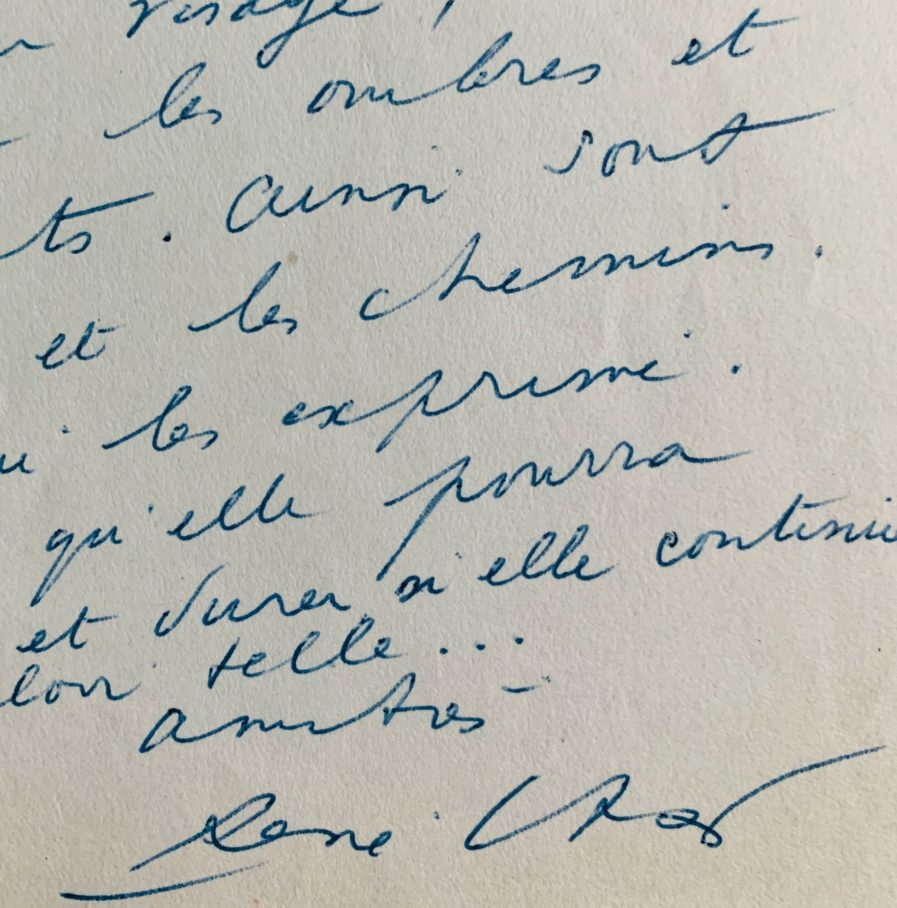 visage,
les ombres et
ts. Ainsi sont
et les chemins.
ui les exprime.
qu'elle pourra
et durer si elle continue
telle...
amitiés
René Char